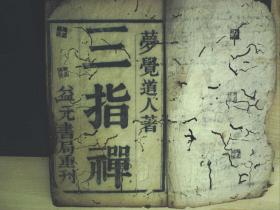 夢覺道人著
三指禪
益元書局重刊